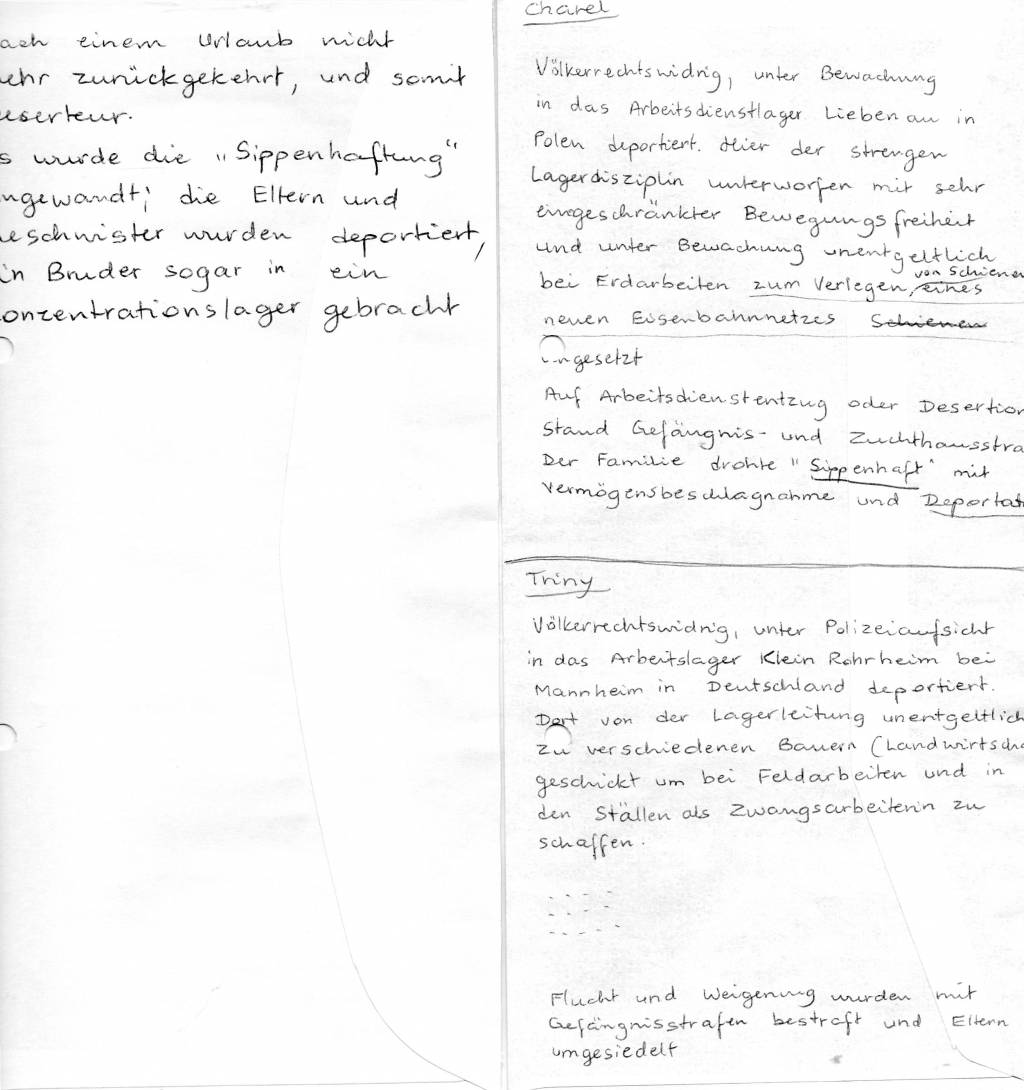 ach einem Urlaub nicht
ehr zurückgekehrt, und somit
eserteur.
s wurde die "Sippenhaftung"
ngewandt; die Eltern und
eschwister wurden deportiert,
in Bruder sogar in ein
onzentrationslager gebracht
Charel
Völkerrechtswidrig, unter Bewachung
in das Arbeitsdienstlager Liebenau in
Polen deportiert. Hier der strengen
Lagerdisziplin unterworfen mit sehr
eingeschränkter Bewegungsfreiheit
und unter Bewachung unentgeltlich
von Schienen
bei Erdarbeiten zum Verlegen, eines
neuen Eisenbahnnetzes Schienen
ingesetzt
Auf Arbeitsdienstentzug oder Desertion
stand Gefängnis- und Zuchthausstra
Der Familie drohte "Sippenhaft" mit
Vermögensbeschlagnahme und Deportat
Triny
Völkerrechtswidrig, unter Polizeiaufsicht
in das Arbeitslager Klein Rohrheim bei
Mannheim in Deutschland deportiert.
Dort von der Lagerleitung unentgeltlich
zu verschiedenen Bauern (Landwirtscha
geschickt um bei Feldarbeiten und in
den Ställen als Zwangsarbeiterin zu
schaffen.
Flucht und Weigerung wurden mit
Gefängnisstrafen bestraft und Eltern
umgesiedelt